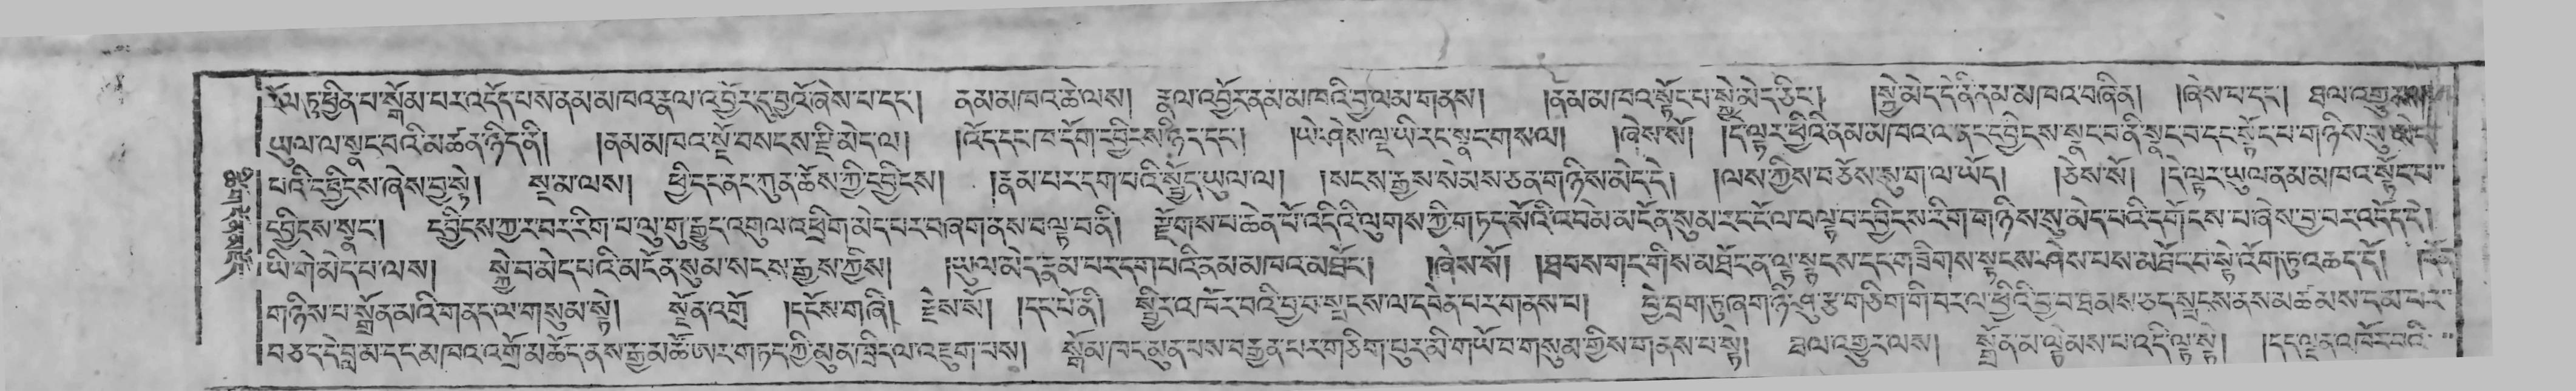 རོལ་ཏུ་ཕྱིན་པ་སྒོམ་པར་འདོད་པས་ནམ་མཁའ་རྣལ་འབྱོར་དུ་བྱའོ་ཞེས་པ་དང་། ནམ་མཁའ་ཆེ་ལས། རྣལ་འབྱོར་ནམ་མཁའི་བྱ་ལམ་གནས། །ནམ་མཁའ་སྟོང་པ་སྐྱེ་མེད་ཅིང་། །སྐྱེ་མེད་དེ་ནི་ནམ་མཁའ་བཞིན། །ཞེས་པ་དང་། ཐལ་འགྱུར་
ཡུལ་ལ་སྣང་བའི་མཚན་ཉིད་ནི། །ནམ་མཁའ་སྔོ་བསངས་དྲི་མེད་ལ། །འོད་དང་ཁ་དོག་དབྱིངས་ཉིད་དང་། །ཡེ་ཤེས་ལྔ་ཡི་རང་སྣང་གསལ། །ཞེས་སོ། །དེ་ལྟར་ཕྱིའི་ནམ་མཁའ་ལ་ནང་དབྱིངས་སྣང་བ་ནི་སྣང་བ་དང་སྟོང་པ་གཉིས་སུ་མེད་
པའི་དབྱིངས་ཞེས་བྱ་སྟེ། སྔ་མ་ལས། ཕྱི་དང་ནང་ཀུན་ཆོས་ཀྱི་དབྱིངས། །རྣམ་པར་དག་པའི་སྤྱོད་ཡུལ་ལ། །སངས་རྒྱས་སེམས་ཅན་གཉིས་མེད་དེ། །ལས་ཀྱིས་བཅོས་སུ་ག་ལ་ཡོད། །ཅེས་སོ། །དེ་ལྟར་ཡུལ་ནམ་མཁའ་སྟོང་པ་
དབྱིངས་སྣང་། དབྱིངས་ཀྱ་ར་བར་རིག་པ་ལུ་གུ་རྒྱུད་འགུལ་འཕྲིག་མེད་པར་བཞག་ནས་བལྟ་བ་ནི། རྫོགས་པ་ཆེན་པོ་འདིའི་ལུགས་ཀྱི་གཏད་སོའི་འབེམ་མངོན་སུམ་རང་ངོ་ལ་བལྟ་བ་དབྱིངས་རིག་གཉིས་སུ་མེད་པའི་དགོངས་པ་ཞེས་བྱ་བར་འདོད་དེ།
ཡི་གེ་མེད་པ་ལས། སྐྱེ་བ་མེད་པའི་མངོན་སུམ་སངས་རྒྱས་ཀྱིས། །ཡུལ་མེད་རྣམ་པར་དག་པའི་ནམ་མཁའ་མཐོང་། །ཞེས་སོ། །ཐབས་གང་གིས་མཐོང་ན་ལྟ་སྟངས་དང་གཟིགས་སྟངས་ཤེས་པས་མཐོང་བ་སྟེ་འོག་ཏུ་འཆད་དོ། །དོན་
གཉིས་པ་སྒྲོན་མའི་གནད་ལ་གསུམ་སྟེ། སྔོན་འགྲོ །དངོས་གཞི། རྗེས་སོ། །དང་པོ་ནི། སྤྱིར་འཁོར་བའི་བྱ་བ་སྤངས་ལ་དབེན་པར་གནས་པ། བྱེ་བྲག་ཏུ་ཞག་ཉི་ཤུ་རྩ་གཅིག་གི་བར་ལ་ཕྱིའི་བྱ་བ་ཐམས་ཅད་སྤངས་ནས་མཚམས་དམ་པར་
བཅད་དེ་བླ་མ་དང་མཁའ་འགྲོ་མཆོད་ནས་རྒྱ་མཚོ་ཨར་གཏད་ཀྱི་མུན་ཁྲིད་ལ་འཇུག་པས། སྒོམ་ཁང་མུན་པས་བརྒྱན་པར་གཅིག་པུར་མི་གཡོ་བ་གསུམ་གྱིས་གནས་པ་སྟེ། ཐལ་འགྱུར་ལས། སྒྲོན་མ་ལྟེམས་པ་འདི་ལྟ་སྟེ། །དད་ལྡན་འཁོར་བའི་